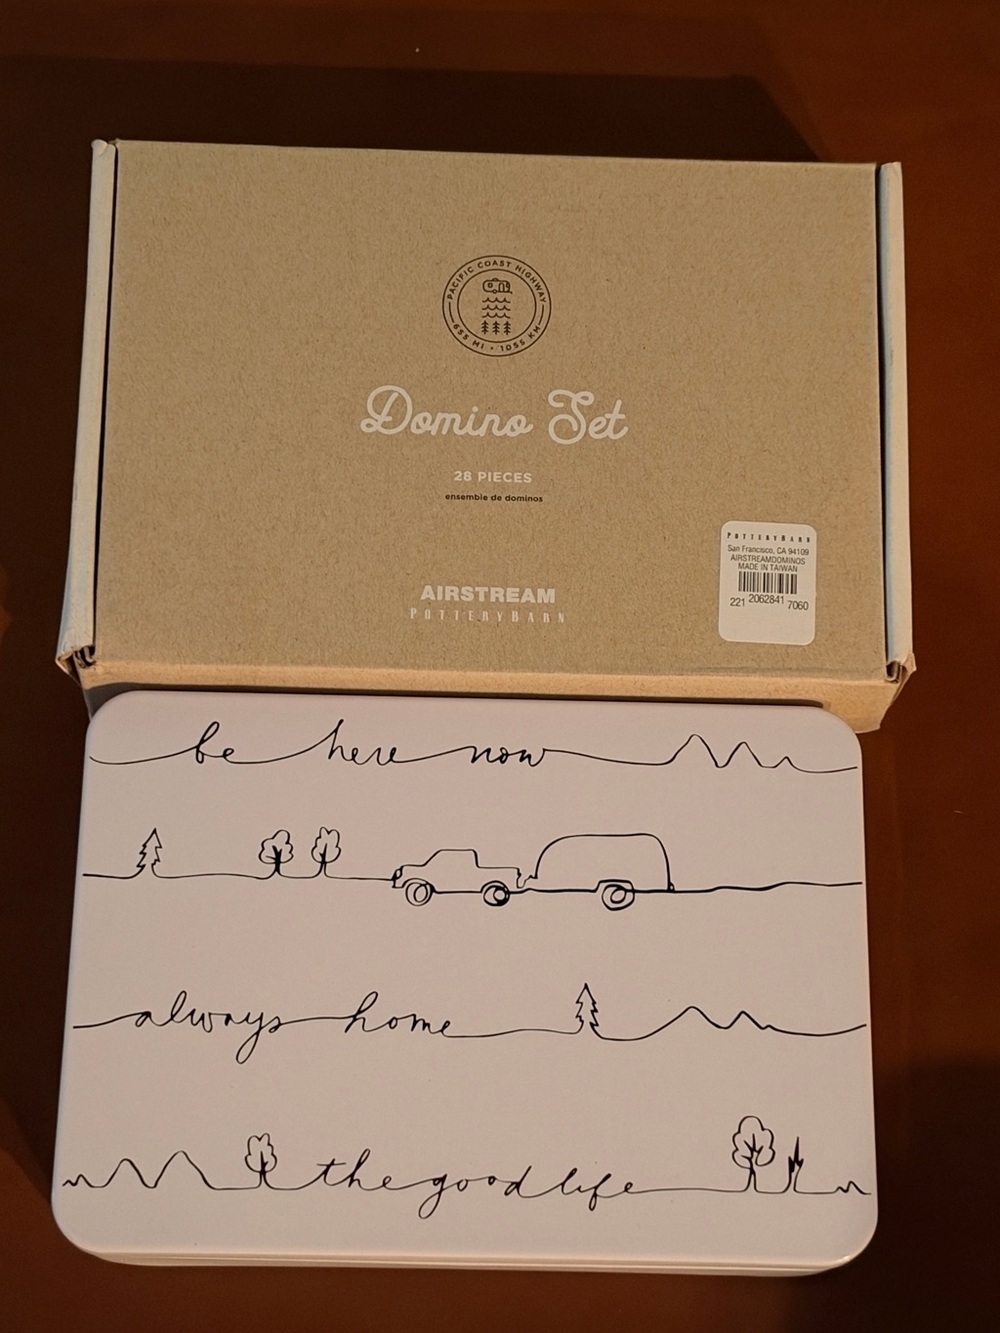 PACIFIC COAST HIGHWAY
655 MI • 1055 KM
Domino Set
28 PIECES
ensemble de dominos
AIRSTREAM
POTTERYBARN
POTTERYBARN
San Francisco, CA 94109
AIRSTREAMDOMINOS
MADE IN TAIWAN
221 2062841 7060
be here now
always home
the good life